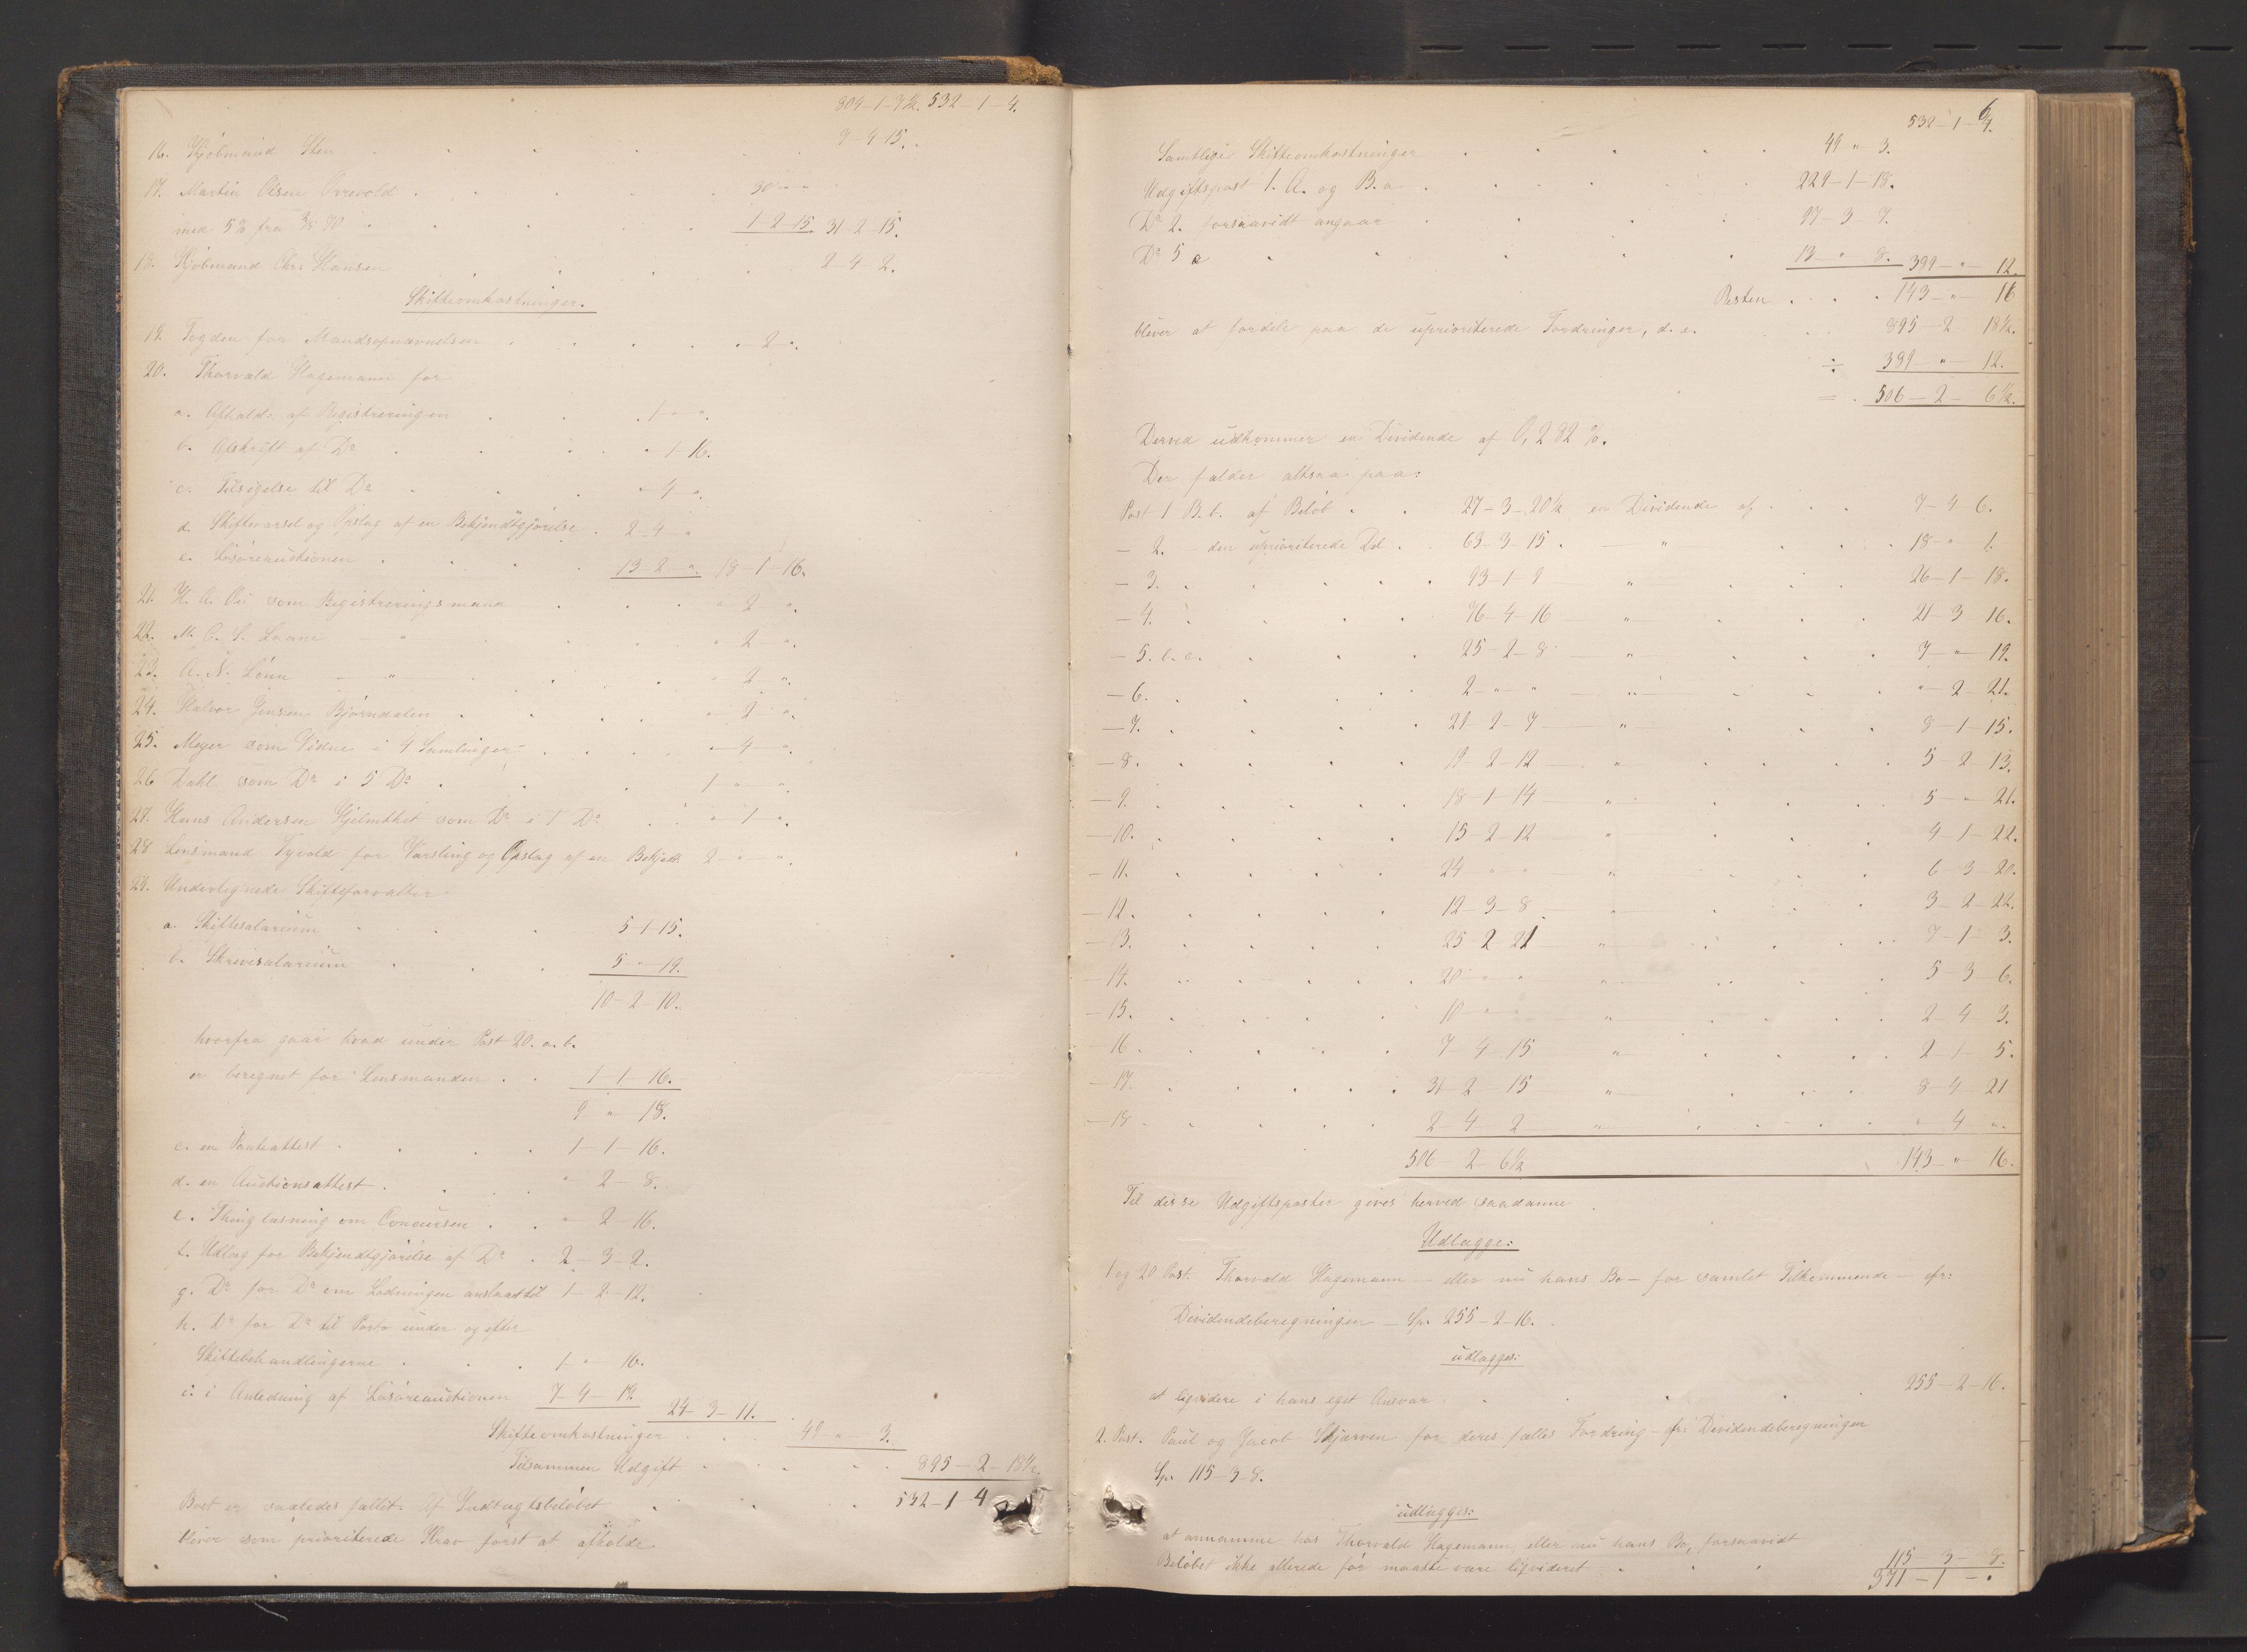 809-1-3½. 532-1-4.
16. Kjöbmand Sten . . . . . 7-4-15.
17. Martin Olsen Ovrevold . . . . 30 " "
med 5% fra 3/5 70 . . . . 1-2-15. 31-2-15.
18. Kjöbmand Chr: Hansen . . . . 2-4-2.
Skifteomkostninger.
19. Fogden for Mandsopnævnelsen . . . . " 2 - ".
20. Thorvald Hagemann for
a. Afhold: af Registreringen . . . 1 " ".
b. Afskrift af Do . . . " 1-16.
c. Tilsigelse til Do . . . " 4 ".
d. Skiftevarsel og Opslag af en Bekjendtgjörelse . 2-4 "
e. Lösöreauctionen . . . 13-2-". 18-1-16.
21. H. A. Oii som Registreringsmand . . . " 2 ".
22. M. C. S. Laane — " — . . . " 2 - ".
23. A. N. Lönn — " — . . . " 2 - ".
24. Halvor Jensen Björndalen . . . " 2 - ".
25. Meyer som Vidne i 4 Samlinger . . . " 4 - ".
26 Dahl som Do i 5 Do . . . 1 - " - ".
27. Hans Andersen Hjelmthet som Do i 1 Do . . " 1 - ".
28 Lensmand Tyvold for Varsling og Opslag af en Bekjdt. 2 - " - ".
29. Undertegnede Skifteforvalter
a. Skiftesalarium . . . 5-1-15.
b. Skriversalarium . . . 5 - " 19.
10-2-10.
hvorfra gaar hvad under Post 20. a. b.
er beregnet for Lensmanden . . 1-1-16.
9 " 18.
c. en Panteattest . . . . 1-1-16.
d. en Auctionsattest . . . " 2-8.
e. Thinglæsning om Concursen . . " 2-16.
f. Udlæg for Bekjendtgjörelse af Do . 2-3-2.
g. Do for Do om Lodningen anslaat til 1-2-12.
h. Do for Do til Porto under og efter
Skiftebehandlingerne . . . 1 - " 16.
i. i Anledning af Lösöreauctionen 7-4-19.
24-3-11.
Skifteomkostninger . . . 49 " 3.
Tilsammen Udgift . . . . 895-2-18½.
Boet er saaledes fallit. Af Indtægtsbelöbet . . . 532-1 4
bliver som prioriterede Krav först at afholde
6
532-1-4.
Samtlige Skifteomkostninger . . . . 49 " 3.
Udgiftspost 1. A. og B. a . . . . 229-1-18.
Do 2. forsaavidt angaar . . . . 97-3-7.
Do 5 a . . . . 13 " 8. 389 - " 12.
Resten . . . . 143 - " 16
bliver at fordele paa de uprioriterede Fordringer, d. e. . . 895-2 18½.
÷ 389 " 12.
= . 506-2-6½.
Derved udkommer en Dividende af 0,282 %.
Der falder altsaa paa:
Post 1 B. b. af Belöb . . 27-3-20½ en Dividende af . . . 7-4-6.
— 2. — den uprioriterede Del . . 63-3-15. — " . . . 18 " 1.
— 3. . . . . 93-1-9 — " . . . 26-1-18.
— 4. . . . . 76-4-16 — " . . . 21-3 16.
— 5. b. c. . . . 25-2-8 — " . . . 7 - " 19.
— 6. . . . . 2 - " " — " . . . " 2-21.
— 7. . . . . 29-2-7 — " . . . 8-1-15.
— 8. . . . . 19-2-12 — " . . . 5-2-13.
— 9. . . . . 18-1-14 — " . . . 5 - " 21.
— 10. . . . . 15-2-12 " . . . 4-1-22.
— 11. . . . . 24 " " " . . . 6-3-20.
— 12. . . . . 12-3-8 " . . . 3-2-22.
— 13. . . . . 25-2 21 " . . . 7-1-3.
— 14. . . . . 20 " " " . . . 5-3-6.
— 15. . . . . 10 " " " . . . 2-4-3.
— 16. . . . . 7-4-15 " . . . 2-1-5.
— 17. . . . . 31-2-15 " . . . 8-4-21
— 18. . . . . 2-4-2 " . . . " 4 ".
506-2-6½ 143 - " 16.
Til disse Udgiftsposter gives herved saadanne
Udlægge:
1 og 20 Post. Thorvald Hagemann — eller nu hans Bo — for samlet Tilkommende — cfr:
Dividendeberegningen — Sp. 255-2-16.
udlægges:
at liqvidere i hans eget Ansvar . . . . 255-2-16.
2. Post. Paul og Jacob Skjærven for deres fælles Fordring — cfr: Dividendeberegningen
Sp. 115-3-8.
udlægges:
at annamme hos Thorvald Hagemann, eller nu hans Bo, forsaavidt
Belöbet ikke allerede för maatte være liqvideret . . . 115-3-8.
371-1-"